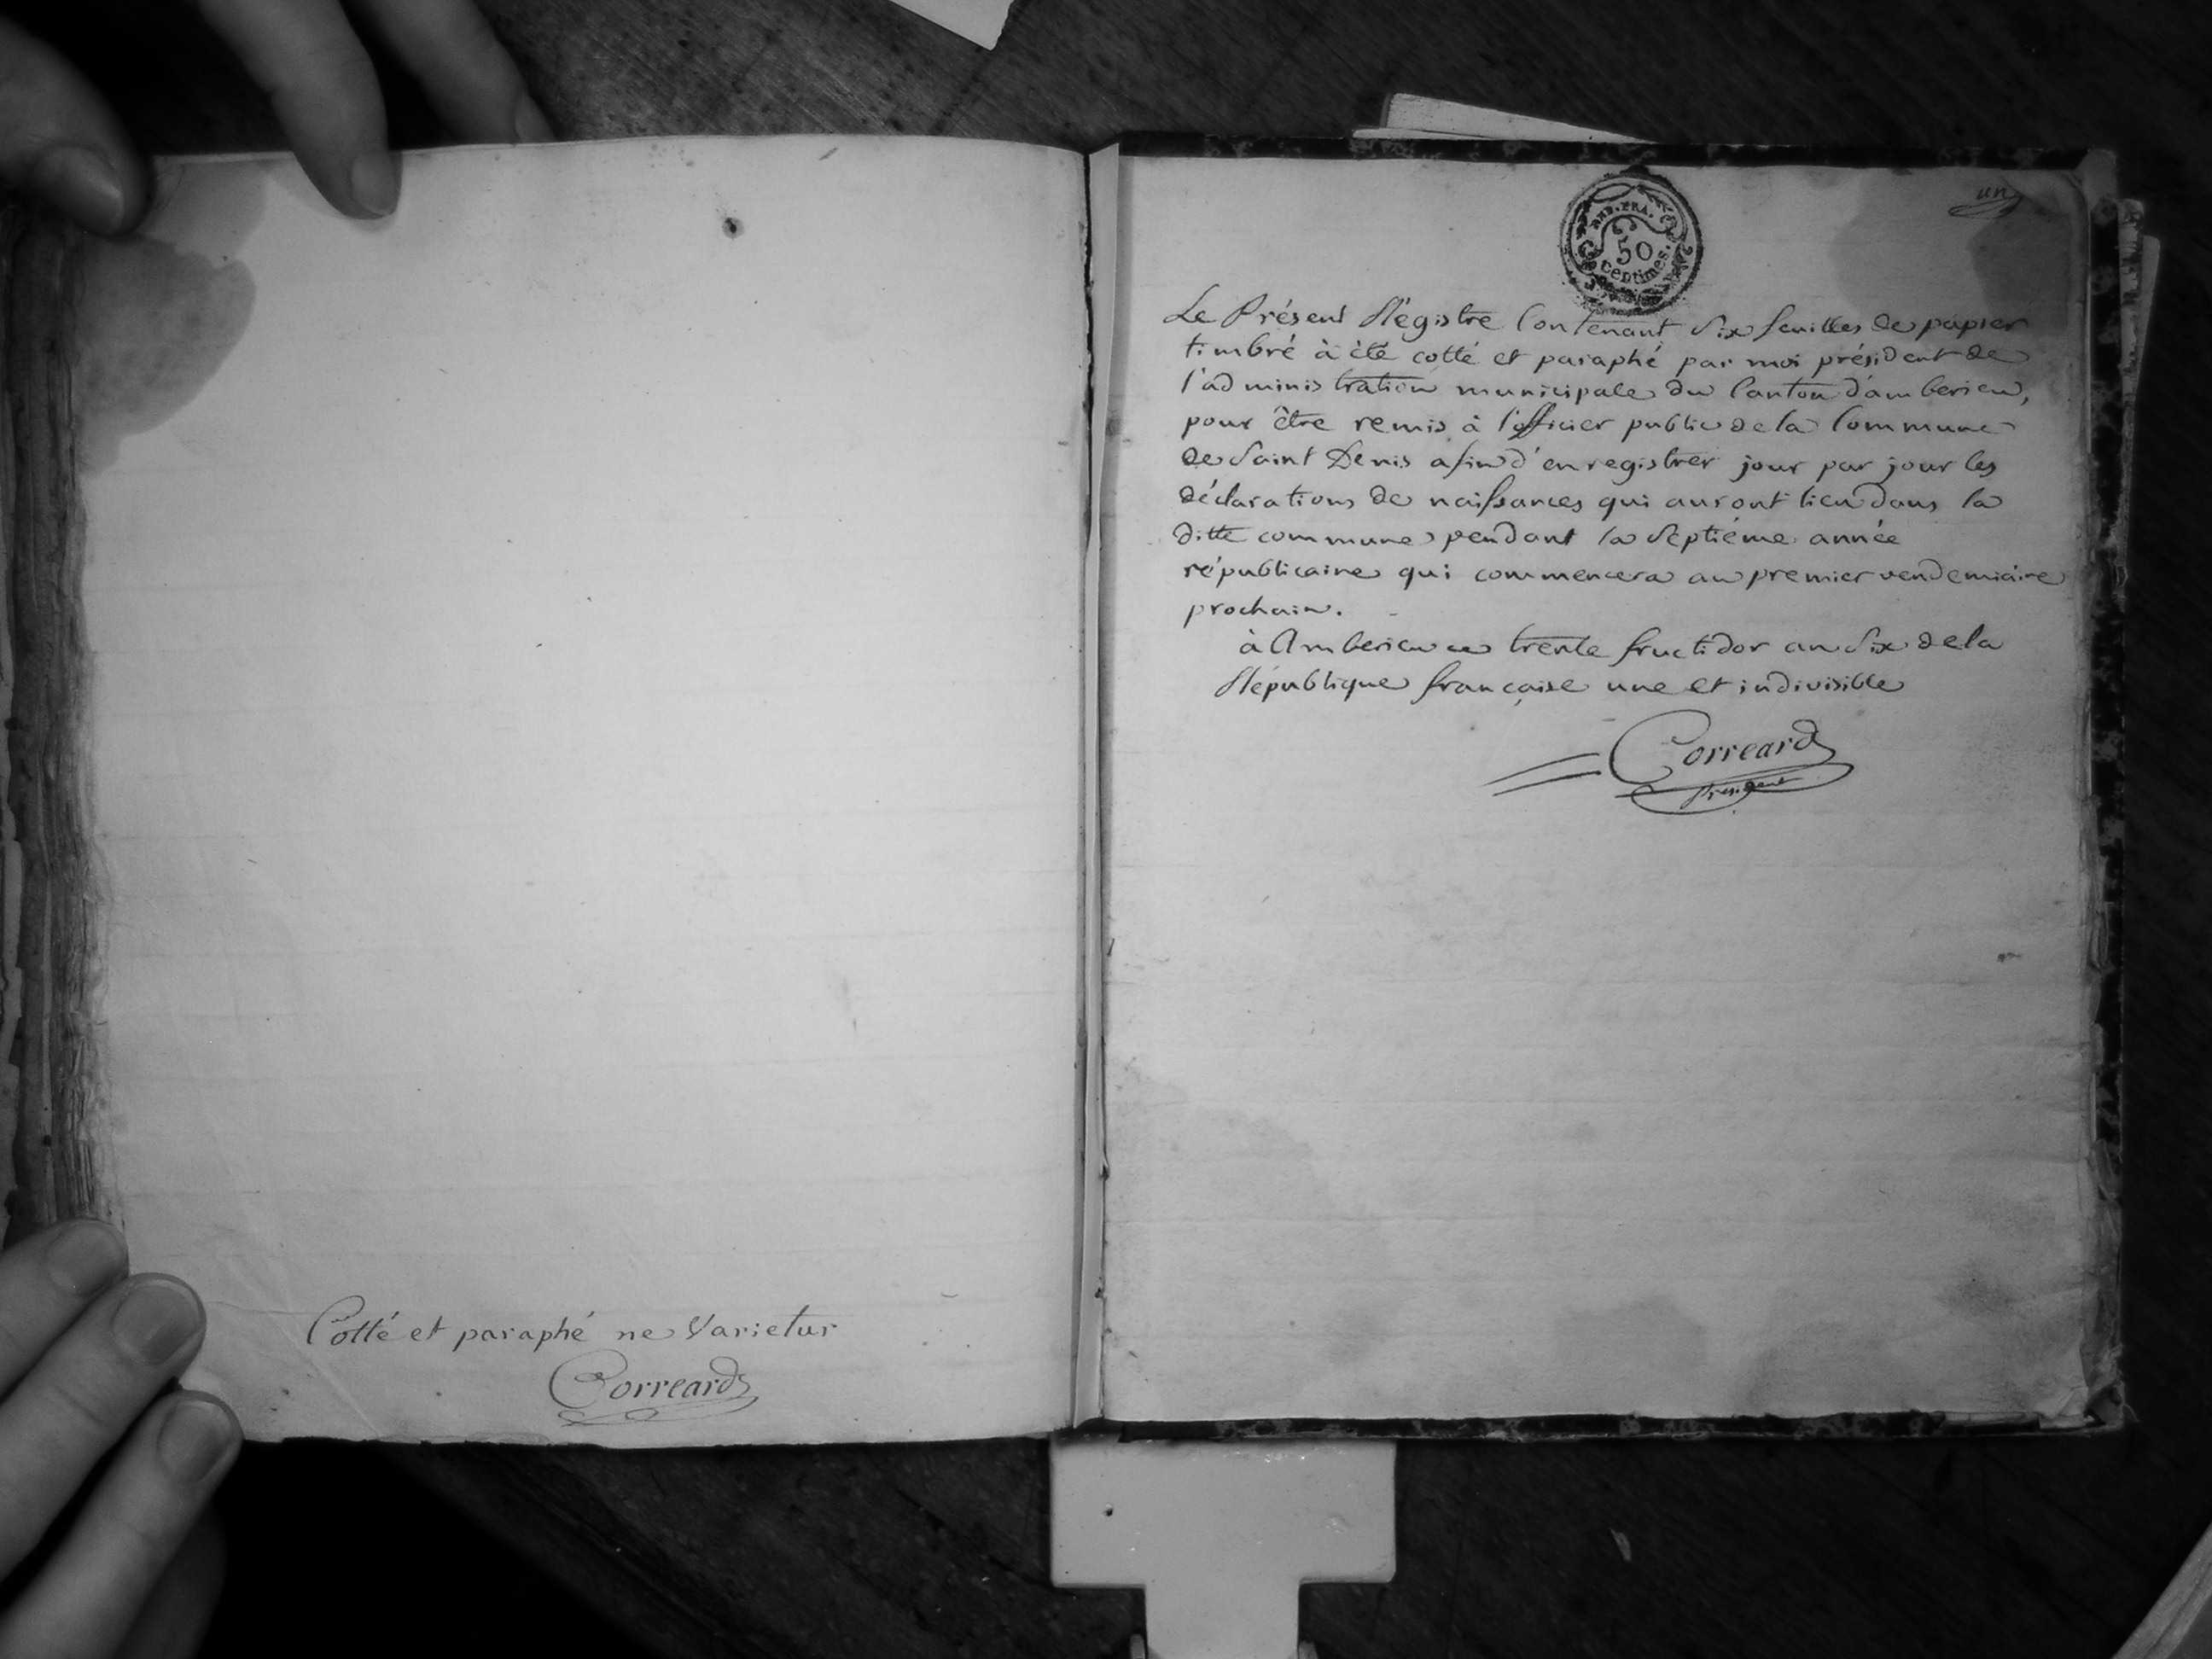 Cotté et paraphé ne Varietur
Correard
un
REP. FRA.
50
centimes.
Le Présent Régistre Contenant Six feuilles de papier
timbré à été cotté et paraphé par moi président de
l'administration municipale du Canton d'amberieu,
pour être remis à l'officier public de la Commune
de Saint Denis afin d'enregistrer jour par jour les
déclarations de naissances qui auront lieu dans la
ditte commune pendant la Septiéme année
républicaine qui commencera au premier vendemiaire
prochain.
à Amberieu ce trente fructidor an Six de la
République française une et indivisible
Correard
Président